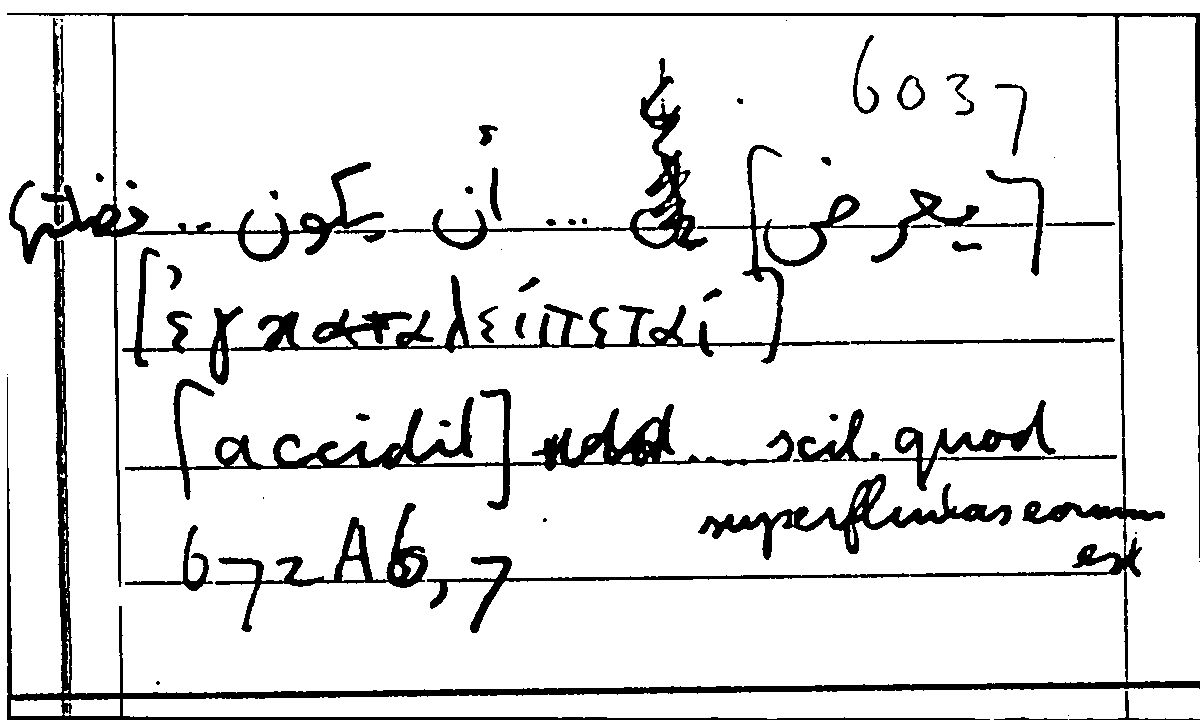 6037
[يعرض] ... أن يكون ..
[ἐγκαταλείπεται]
[accidit] .... scil. quod
superfluitas eorum
est
672 A6,7